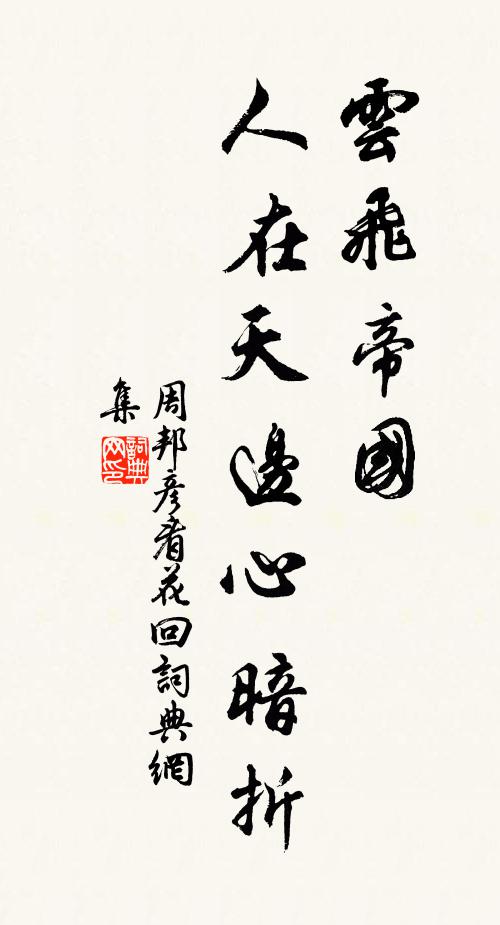 雲飛帝國
人在天邊心暗折
周邦彥看花回詞典網
集
詞典網印